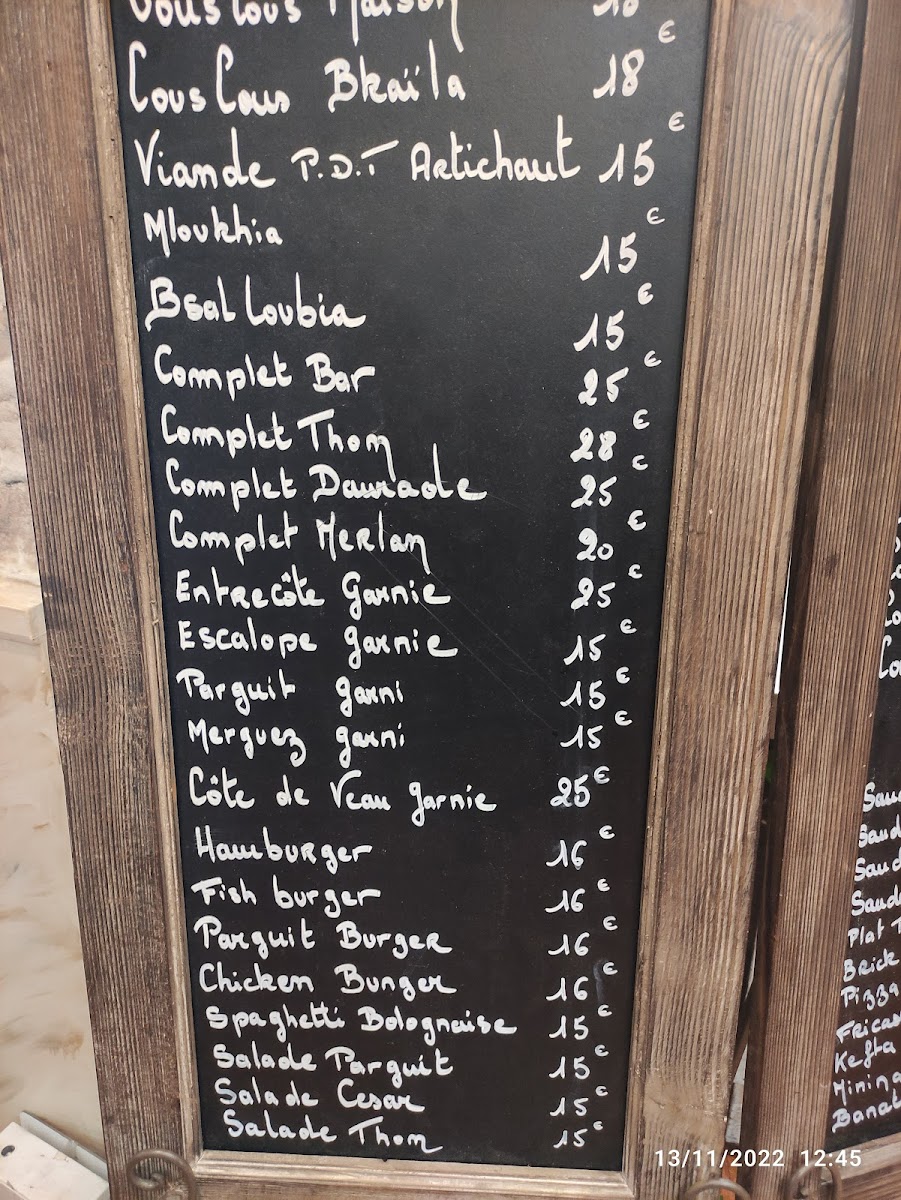 CousCous Maison 18
CousCous Bkaïla 18€
Viande P.D.T Artichaut 15€
Mloukhia 15€
Bsal Loubia 15€
Complet Bar 25€
Complet Thon 28€
Complet Daurade 25€
Complet Merlan 20€
Entrecôte Garnie 25€
Escalope garnie 15€
Parguit garni 15€
Merguez garni 15€
Côte de Veau garnie 25€
Hamburger 16€
Fish burger 16€
Parguit Burger 16€
Chicken Burger 16€
Spaghetti Bolognaise 15€
Salade Parguit 15€
Salade Cesar 15€
Salade Thon 15€
Plat
Brick
Pizza
Fricas
Kefta
Minina
Banat
13/11/2022 12:45